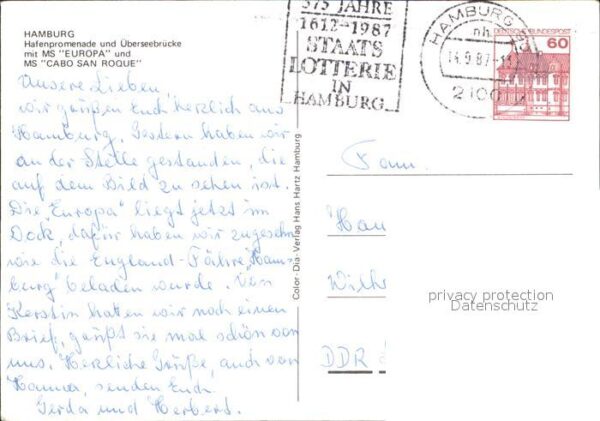 HAMBURG
Hafenpromenade und Überseebrücke
mit MS "EUROPA" und
MS "CABO SAN ROQUE"
375 JAHRE
1612-1987
STAATS
LOTTERIE
IN
HAMBURG
HAMBURG
14.9.87
DEUTSCHE BUNDESPOST
60
Unsere Lieben,
wir grüßen Euch herzlich aus
Hamburg. Gestern haben wir
an der Stelle gestanden, die
auf dem Bild zu sehen ist.
Die „Europa" liegt jetzt im
Dock, dafür haben wir zugesehen
wie die England-Fähre „Ham-
burg" beladen wurde. Von
Kerstin haben wir noch einen
Brief, grüßt sie mal schön von
uns. Herzliche Grüße, auch von
Hanna, senden Euch
Gerda und Herbert.
Color-Dia-Verlag Hans Hartz Hamburg
Fam.
Han
Wilh
DDR
privacy protection
Datenschutz